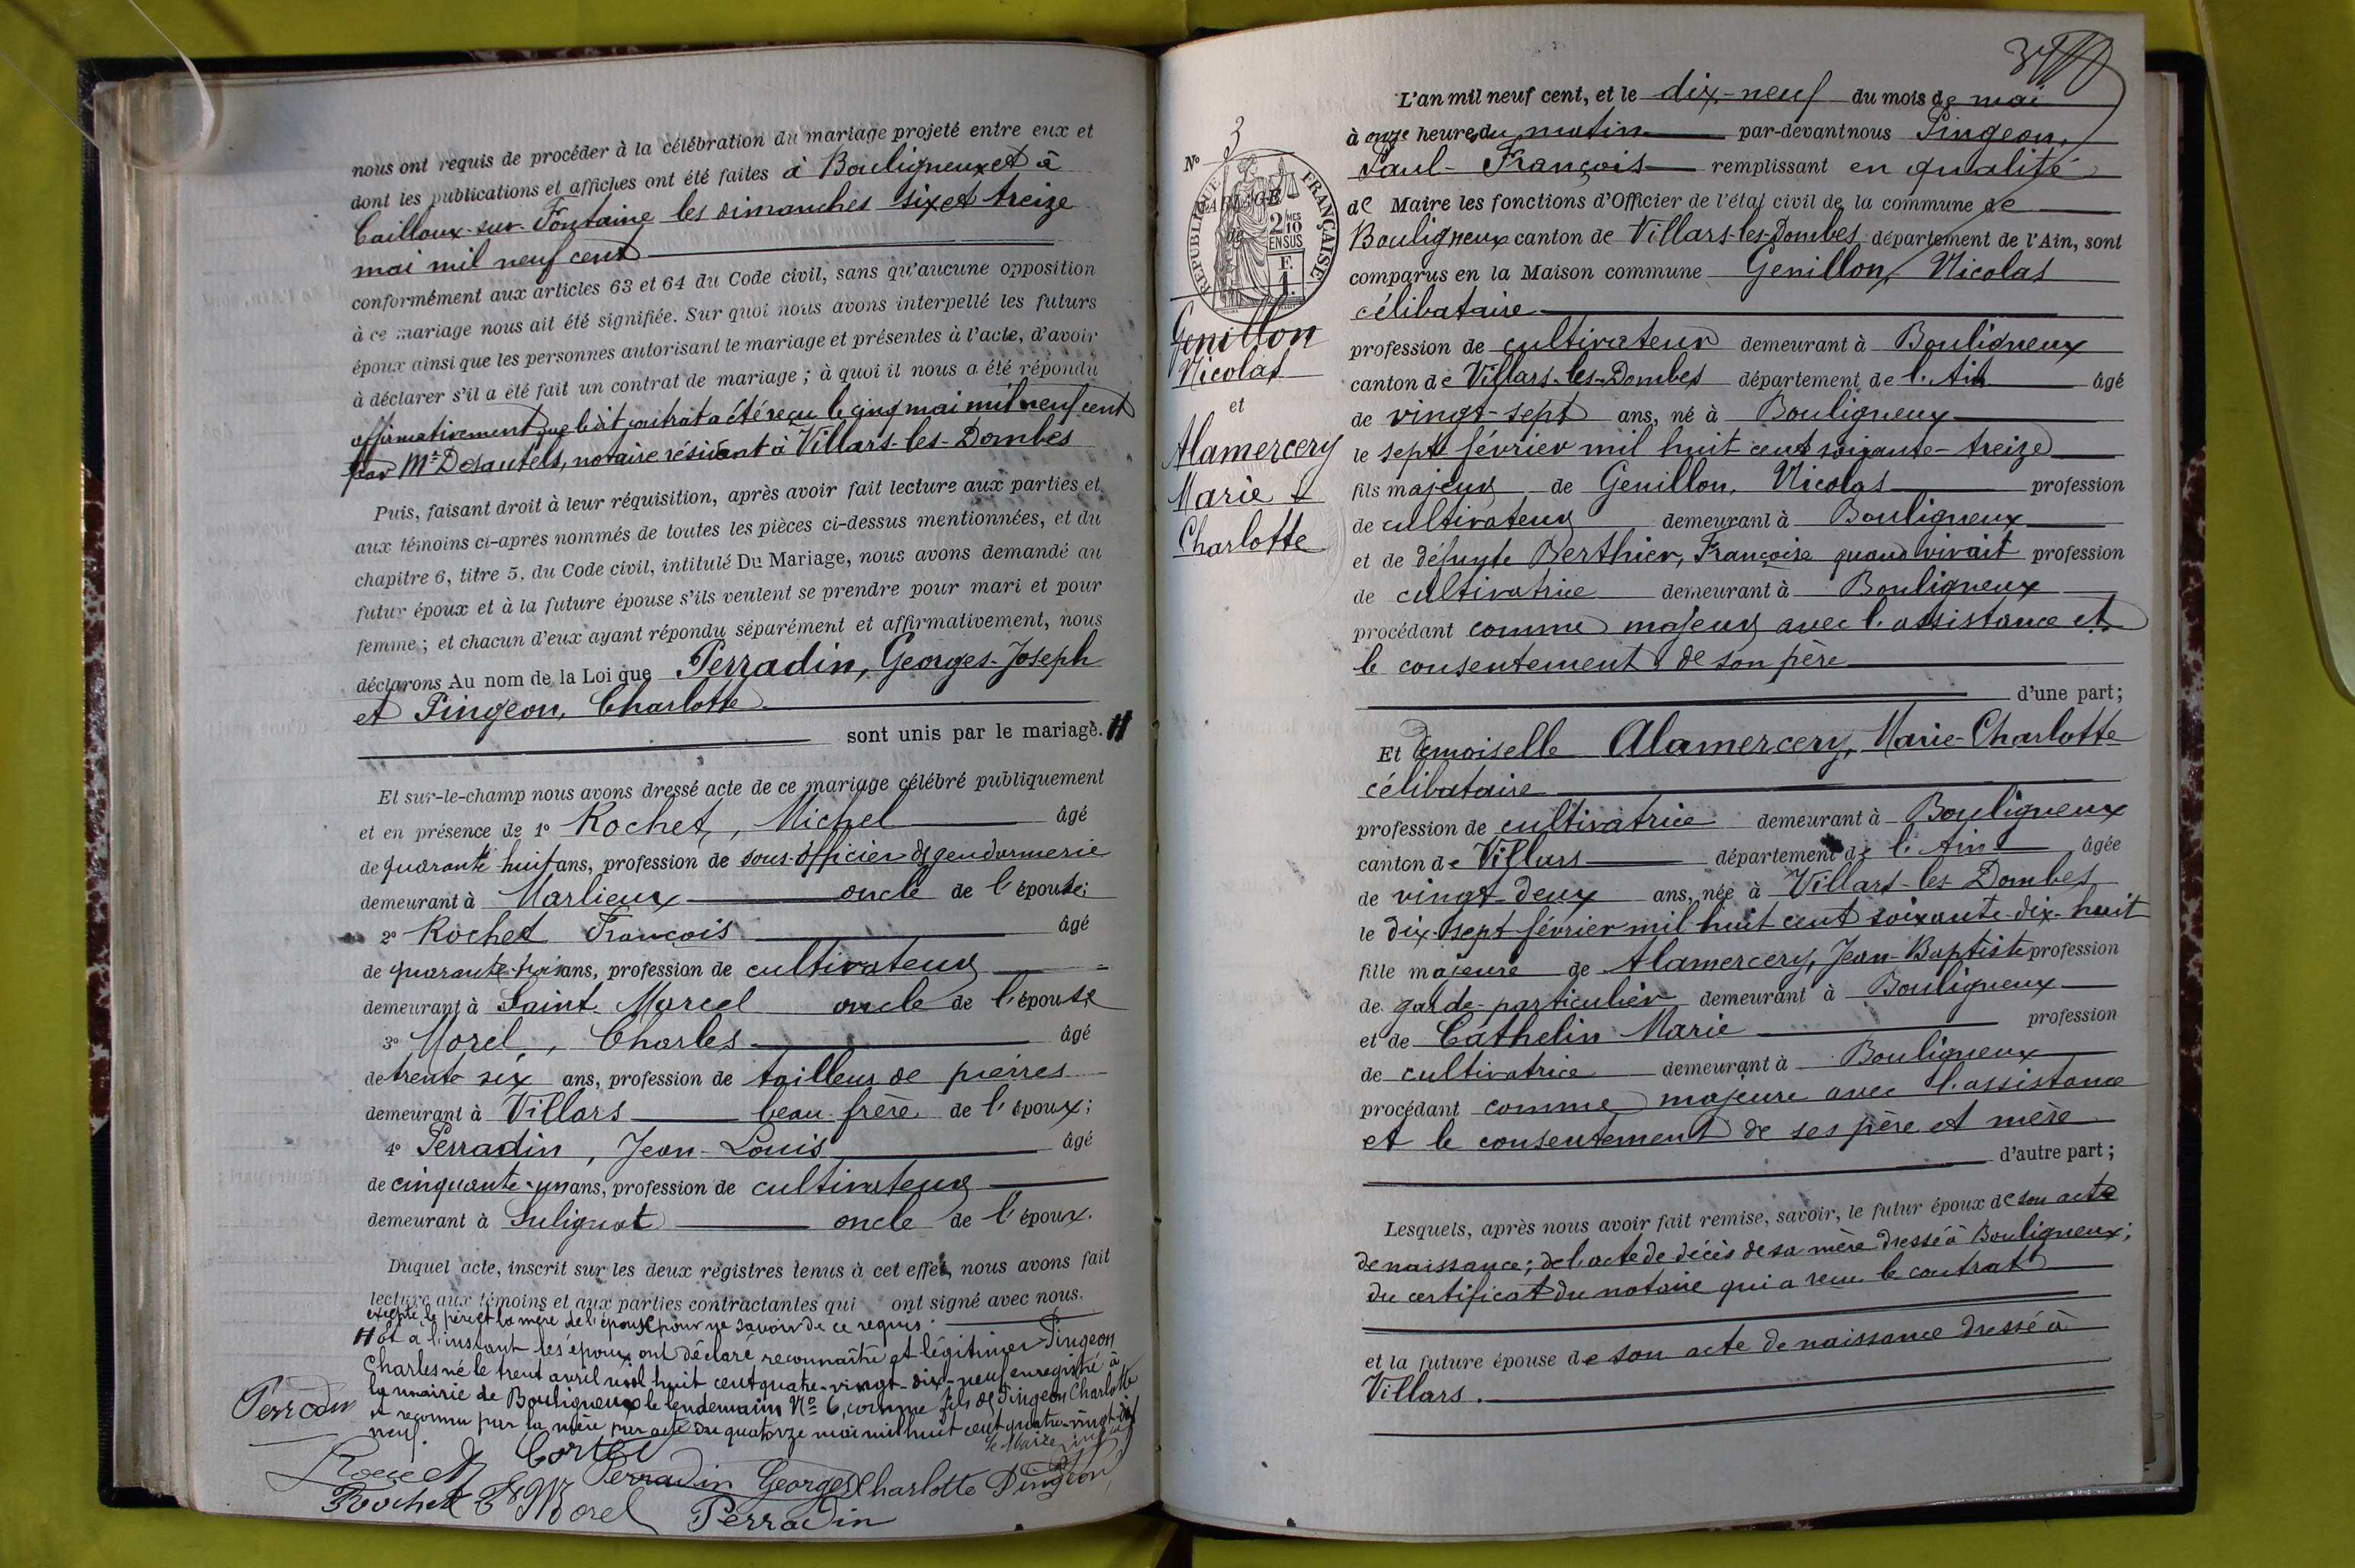 nous ont requis de procéder à la célébration du mariage projeté entre eux et
dont les publications et affiches ont été faites à Bouligneux et à
Cailloux-sur-Fontaine les dimanches six et treize
mai mil neuf cent
conformément aux articles 63 et 64 du Code civil, sans qu'aucune opposition
à ce mariage nous ait été signifiée. Sur quoi nous avons interpellé les futurs
époux ainsi que les personnes autorisant le mariage et présentes à l'acte, d'avoir
à déclarer s'il a été fait un contrat de mariage ; à quoi il nous a été répondu
affirmativement que ledit contrat a été reçu le cinq mai mil neuf cent
par Me Desautels, notaire résidant à Villars-les-Dombes
Puis, faisant droit à leur réquisition, après avoir fait lecture aux parties et
aux témoins ci-après nommés de toutes les pièces ci-dessus mentionnées, et du
chapitre 6, titre 5, du Code civil, intitulé Du Mariage, nous avons demandé au
futur époux et à la future épouse s'ils veulent se prendre pour mari et pour
femme ; et chacun d'eux ayant répondu séparément et affirmativement, nous
déclarons Au nom de la Loi que Perradin, Georges-Joseph
et Pingeon, Charlotte
sont unis par le mariage. H
Et sur-le-champ nous avons dressé acte de ce mariage célébré publiquement
et en présence de 1° Rochet, Michel âgé
de quarante huit ans, profession de sous-officier de gendarmerie
demeurant à Marlieux oncle de l'épouse;
2° Rochet François âgé
de quarante-trois ans, profession de cultivateur
demeurant à Saint-Marcel oncle de l'épouse
3° Morel, Charles âgé
de trente six ans, profession de tailleur de pierres
demeurant à Villars beau-frère de l'époux;
4° Perradin, Jean-Louis âgé
de cinquante-un ans, profession de cultivateur
demeurant à Sulignat oncle de l'époux.
Duquel acte, inscrit sur les deux registres tenus à cet effet, nous avons fait
lecture aux témoins et aux parties contractantes qui ont signé avec nous.
excepté le père et la mère de l'épouse pour ne savoir de ce requis.
H et à l'instant les époux ont déclaré reconnaître et légitimer Pingeon
Charles né le trent avril mil huit cent quatre-vingt-dix-neuf enregistré à
la mairie de Bouligneux le lendemain No 6, comme fils de Pingeon Charlotte
et reconnu par la mère par acte du quatorze mai mil huit cent quatre-vingt-dix
neuf.
Perradin
Le Maire
Rochet
Perradin Georges Charlotte Pingeon
Rochet
Morel Perradin
L'an mil neuf cent, et le dix-neuf du mois de mai
à onze heures du matin par-devant nous Pingeon,
Paul-François remplissant en qualité
de Maire les fonctions d'Officier de l'état civil de la commune de
Bouligneux canton de Villars-les-Dombes département de l'Ain, sont
comparus en la Maison commune Genillon, Nicolas
célibataire
profession de cultivateur demeurant à Bouligneux
canton de Villars-les-Dombes département de l'Ain âgé
de vingt-sept ans, né à Bouligneux
le sept février mil huit cent soixante-treize
fils majeur de Genillon, Nicolas profession
de cultivateur demeurant à Bouligneux
et de défunte Berthier, Françoise quand vivait profession
de cultivatrice demeurant à Bouligneux
procédant comme majeur avec l'assistance et
le consentement de son père
d'une part;
Et demoiselle Alamercery, Marie-Charlotte
célibataire
profession de cultivatrice demeurant à Bouligneux
canton de Villars département de l'Ain âgée
de vingt-deux ans, née à Villars-les-Dombes
le dix-sept février mil huit cent soixante-dix-huit
fille majeure de Alamercery, Jean-Baptiste profession
de garde-particulier demeurant à Bouligneux
et de Cathelin Marie profession
de cultivatrice demeurant à Bouligneux
procédant comme majeure avec l'assistance
et le consentement de ses père et mère
d'autre part;
Lesquels, après nous avoir fait remise, savoir, le futur époux de son acte
de naissance; de l'acte de décès de sa mère dressé à Bouligneux;
du certificat du notaire qui a reçu le contrat
et la future épouse de son acte de naissance dressé à
Villars.
N° 3
RÉPUBLIQUE FRANÇAISE
MARIAGE
de
2 MES
10
EN SUS
Genillon
Nicolas
et
Alamercery
Marie
Charlotte